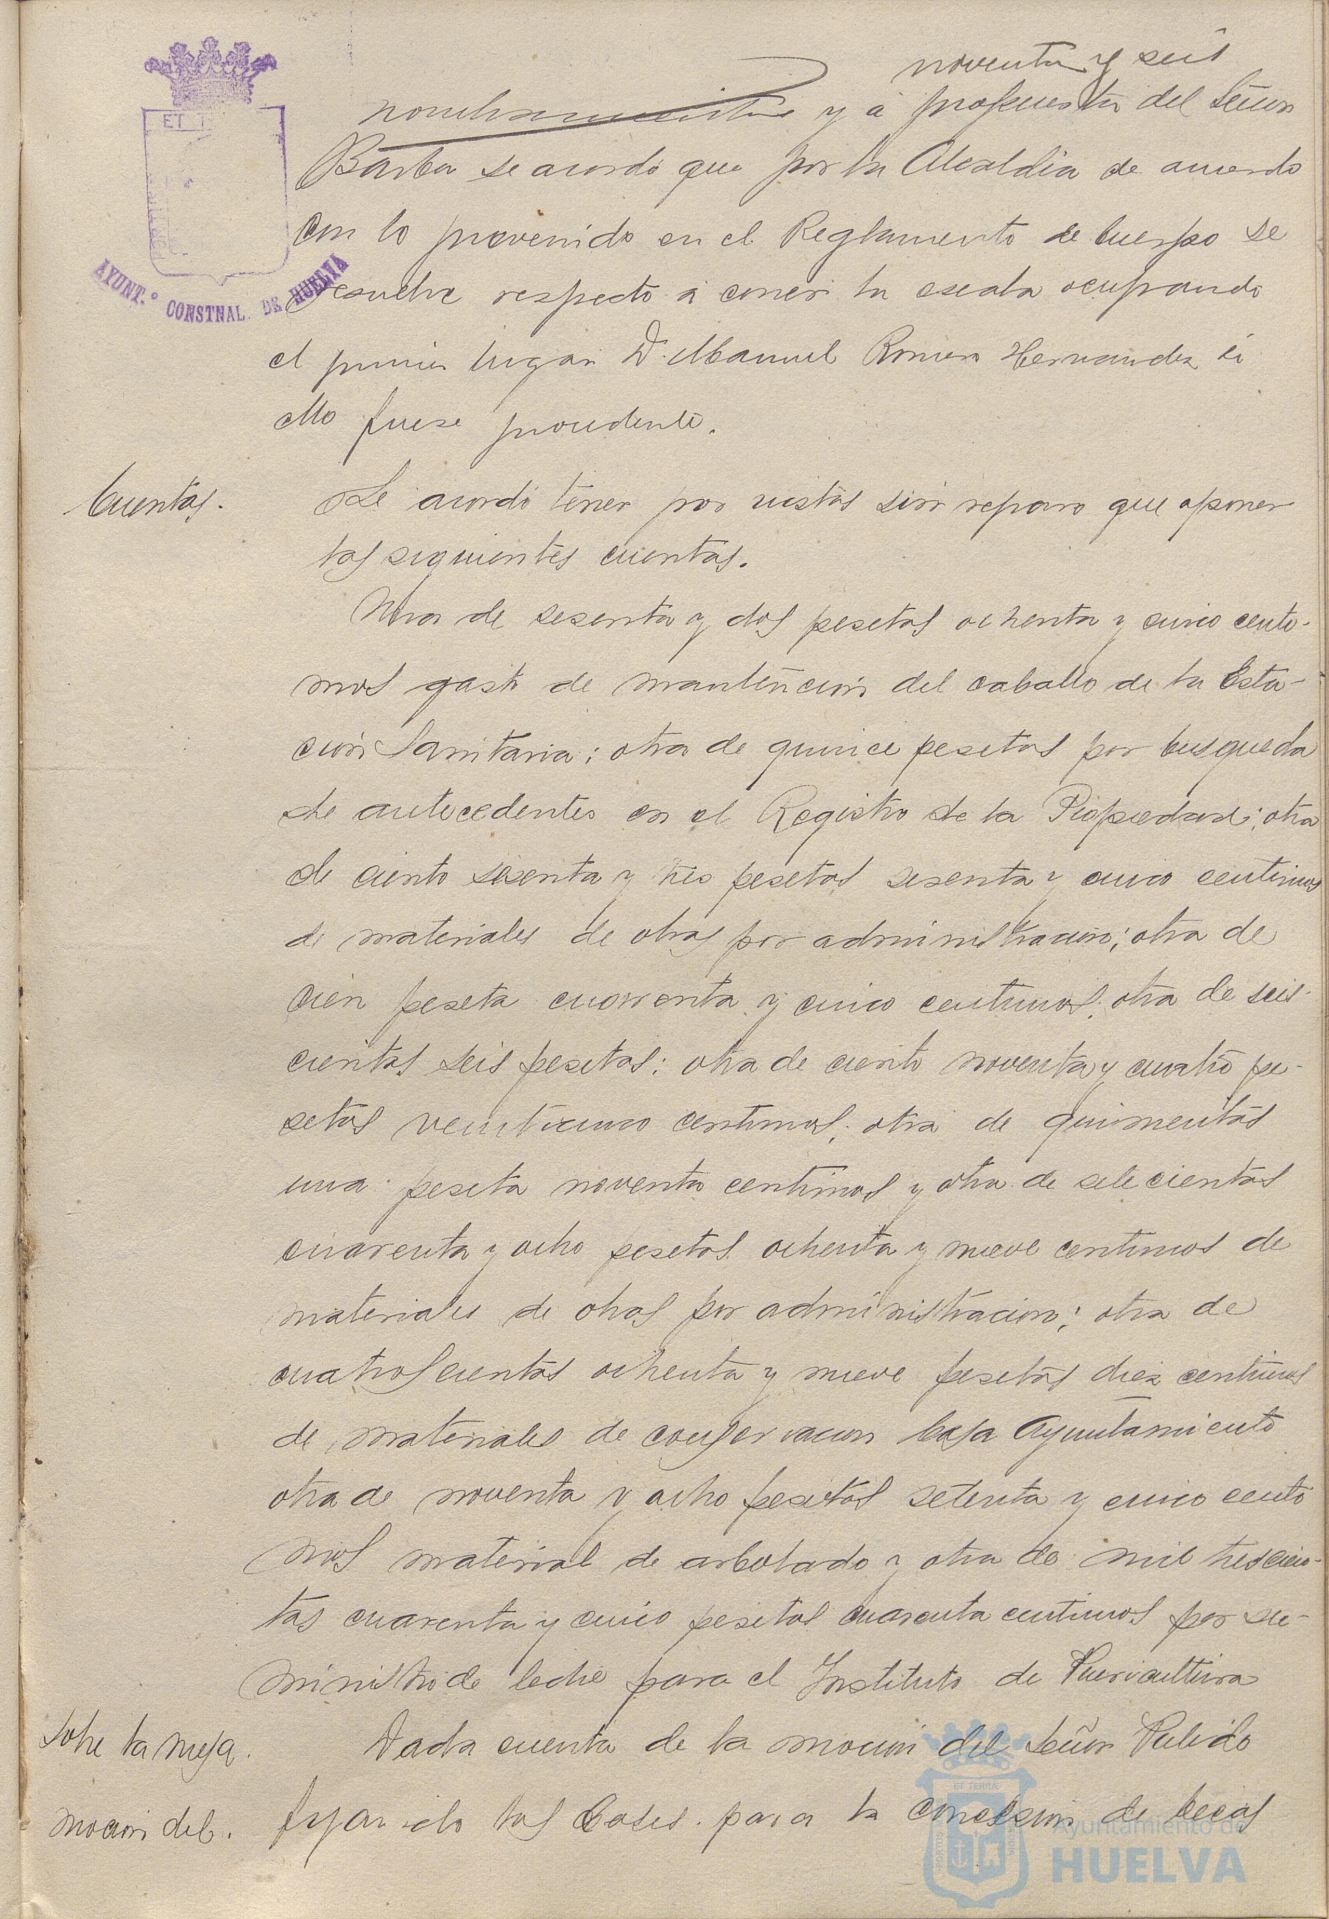 noventa y seis
nombramiento y á propuesta del Señor
Barba se acordó que por la Alcaldia de acuerdo
con lo prevenido en el Reglamento de Cuerpo se
resuelve respecto á correr la escala ocupando
el primer lugar D. Manuel Romero Hernandez si
ello fuese procedente.
Cuentas.
Se acordó tener por vistas sin reparo que oponer
las siguientes cuentas.
Una de sesenta y dos pesetas ochenta y cinco centi-
mos gasto de mantención del caballo de la Esta-
ción Sanitaria; otra de quince pesetas por busqueda
de antecedentes en el Registro de la Propiedad; otra
de ciento sesenta y tres pesetas sesenta y cinco centimos
de materiales de obras por administracion; otra de
cien peseta cuarenta y cinco centimos; otra de seis-
cientas seis pesetas; otra de ciento noventa y cuatro pe-
setas veinticinco centimos; otra de quinientas
una peseta noventa centimos y otra de setecientas
cuarenta y ocho pesetas ochenta y nueve centimos de
materiales de obras por administracion; otra de
cuatroscientas ochenta y nueve pesetas diez centimos
de materiales de conservacion Casa Ayuntamiento
otra de noventa y ocho pesetas setenta y cinco centi
mos material de arbolado y otra de mil trescien-
tas cuarenta y cinco pesetas cuarenta centimos por su-
ministro de leche para el Instituto de Puericultura
Sobre la mesa.
moción del.
Dada cuenta de la moción del Señor Pulido
fijando las bases para la concesion de becas
ET T
AYUNT.º CONSTNAL. DE HUELVA
ET TERRA
Ayuntamiento de
HUELVA